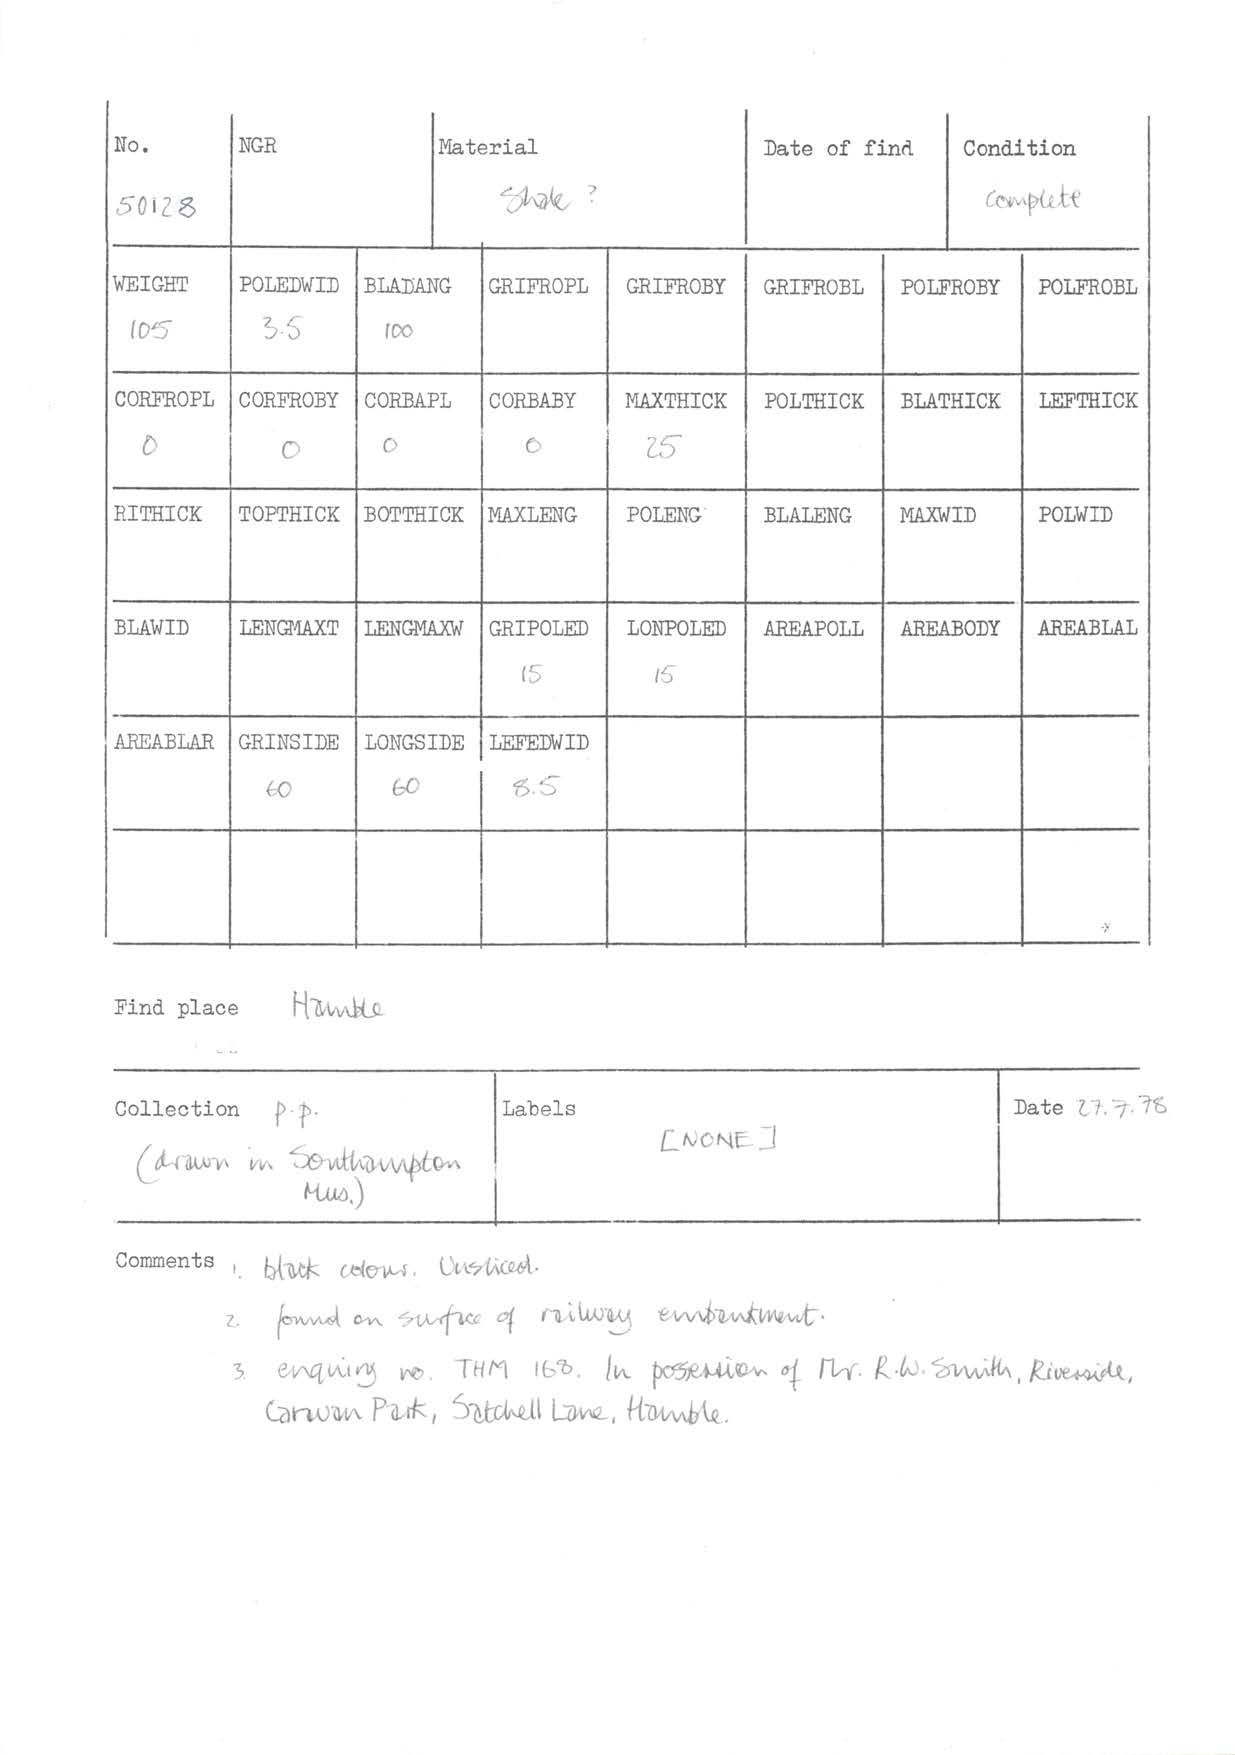 No. NGR Material Date of find Condition
50128 Shale ? complete
WEIGHT POLEDWID BLADANG GRIFROPL GRIFROBY GRIFROBL POLFROBY POLFROBL
105 3.5 100
CORFROPL CORFROBY CORBAPL CORBABY MAXTHICK POLTHICK BLATHICK LEFTHICK
0 0 0 0 25
RITHICK TOPTHICK BOTTHICK MAXLENG POLENG BLALENG MAXWID POLWID
BLAWID LENGMAXT LENGMAXW GRIPOLED LONPOLED AREAPOLL AREABODY AREABLAL
15 15
AREABLAR GRINSIDE LONGSIDE LEFEDWID
60 60 8.5
Find place Hamble
Collection p.p. Labels Date 27.7.78
(drawn in Southampton [NONE]
Mus.)
Comments 1. black colour. Unsliced.
2. found on surface of railway embankment.
3. enquiry no. THM 168. In possession of Mr. R.W. Smith, Riverside,
Caravan Park, Satchell Lane, Hamble.